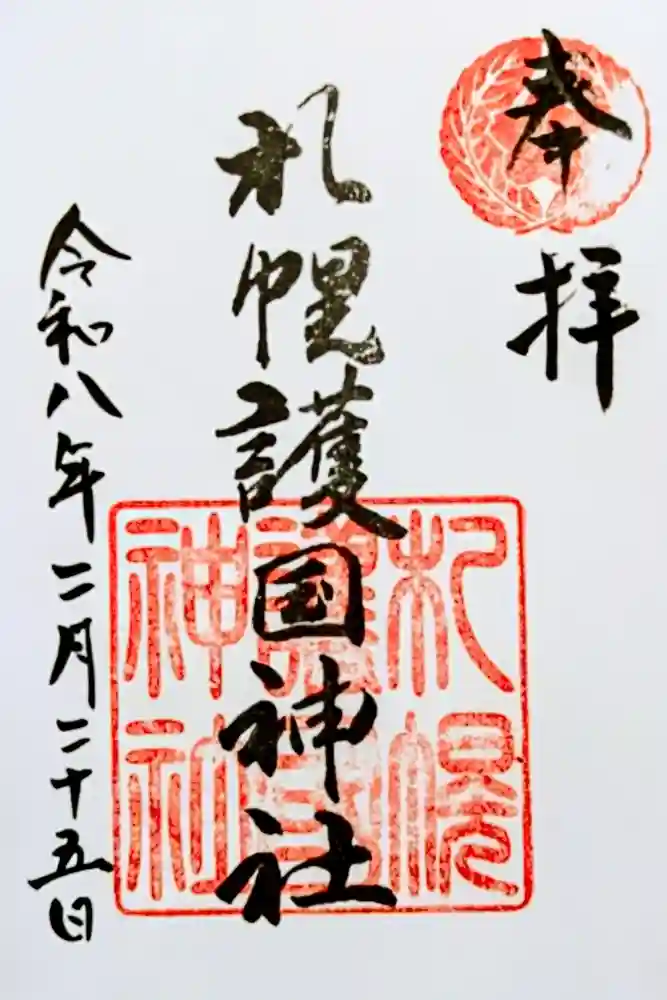 奉拝
札幌護国神社
札幌護国神社
令和八年二月二十五日